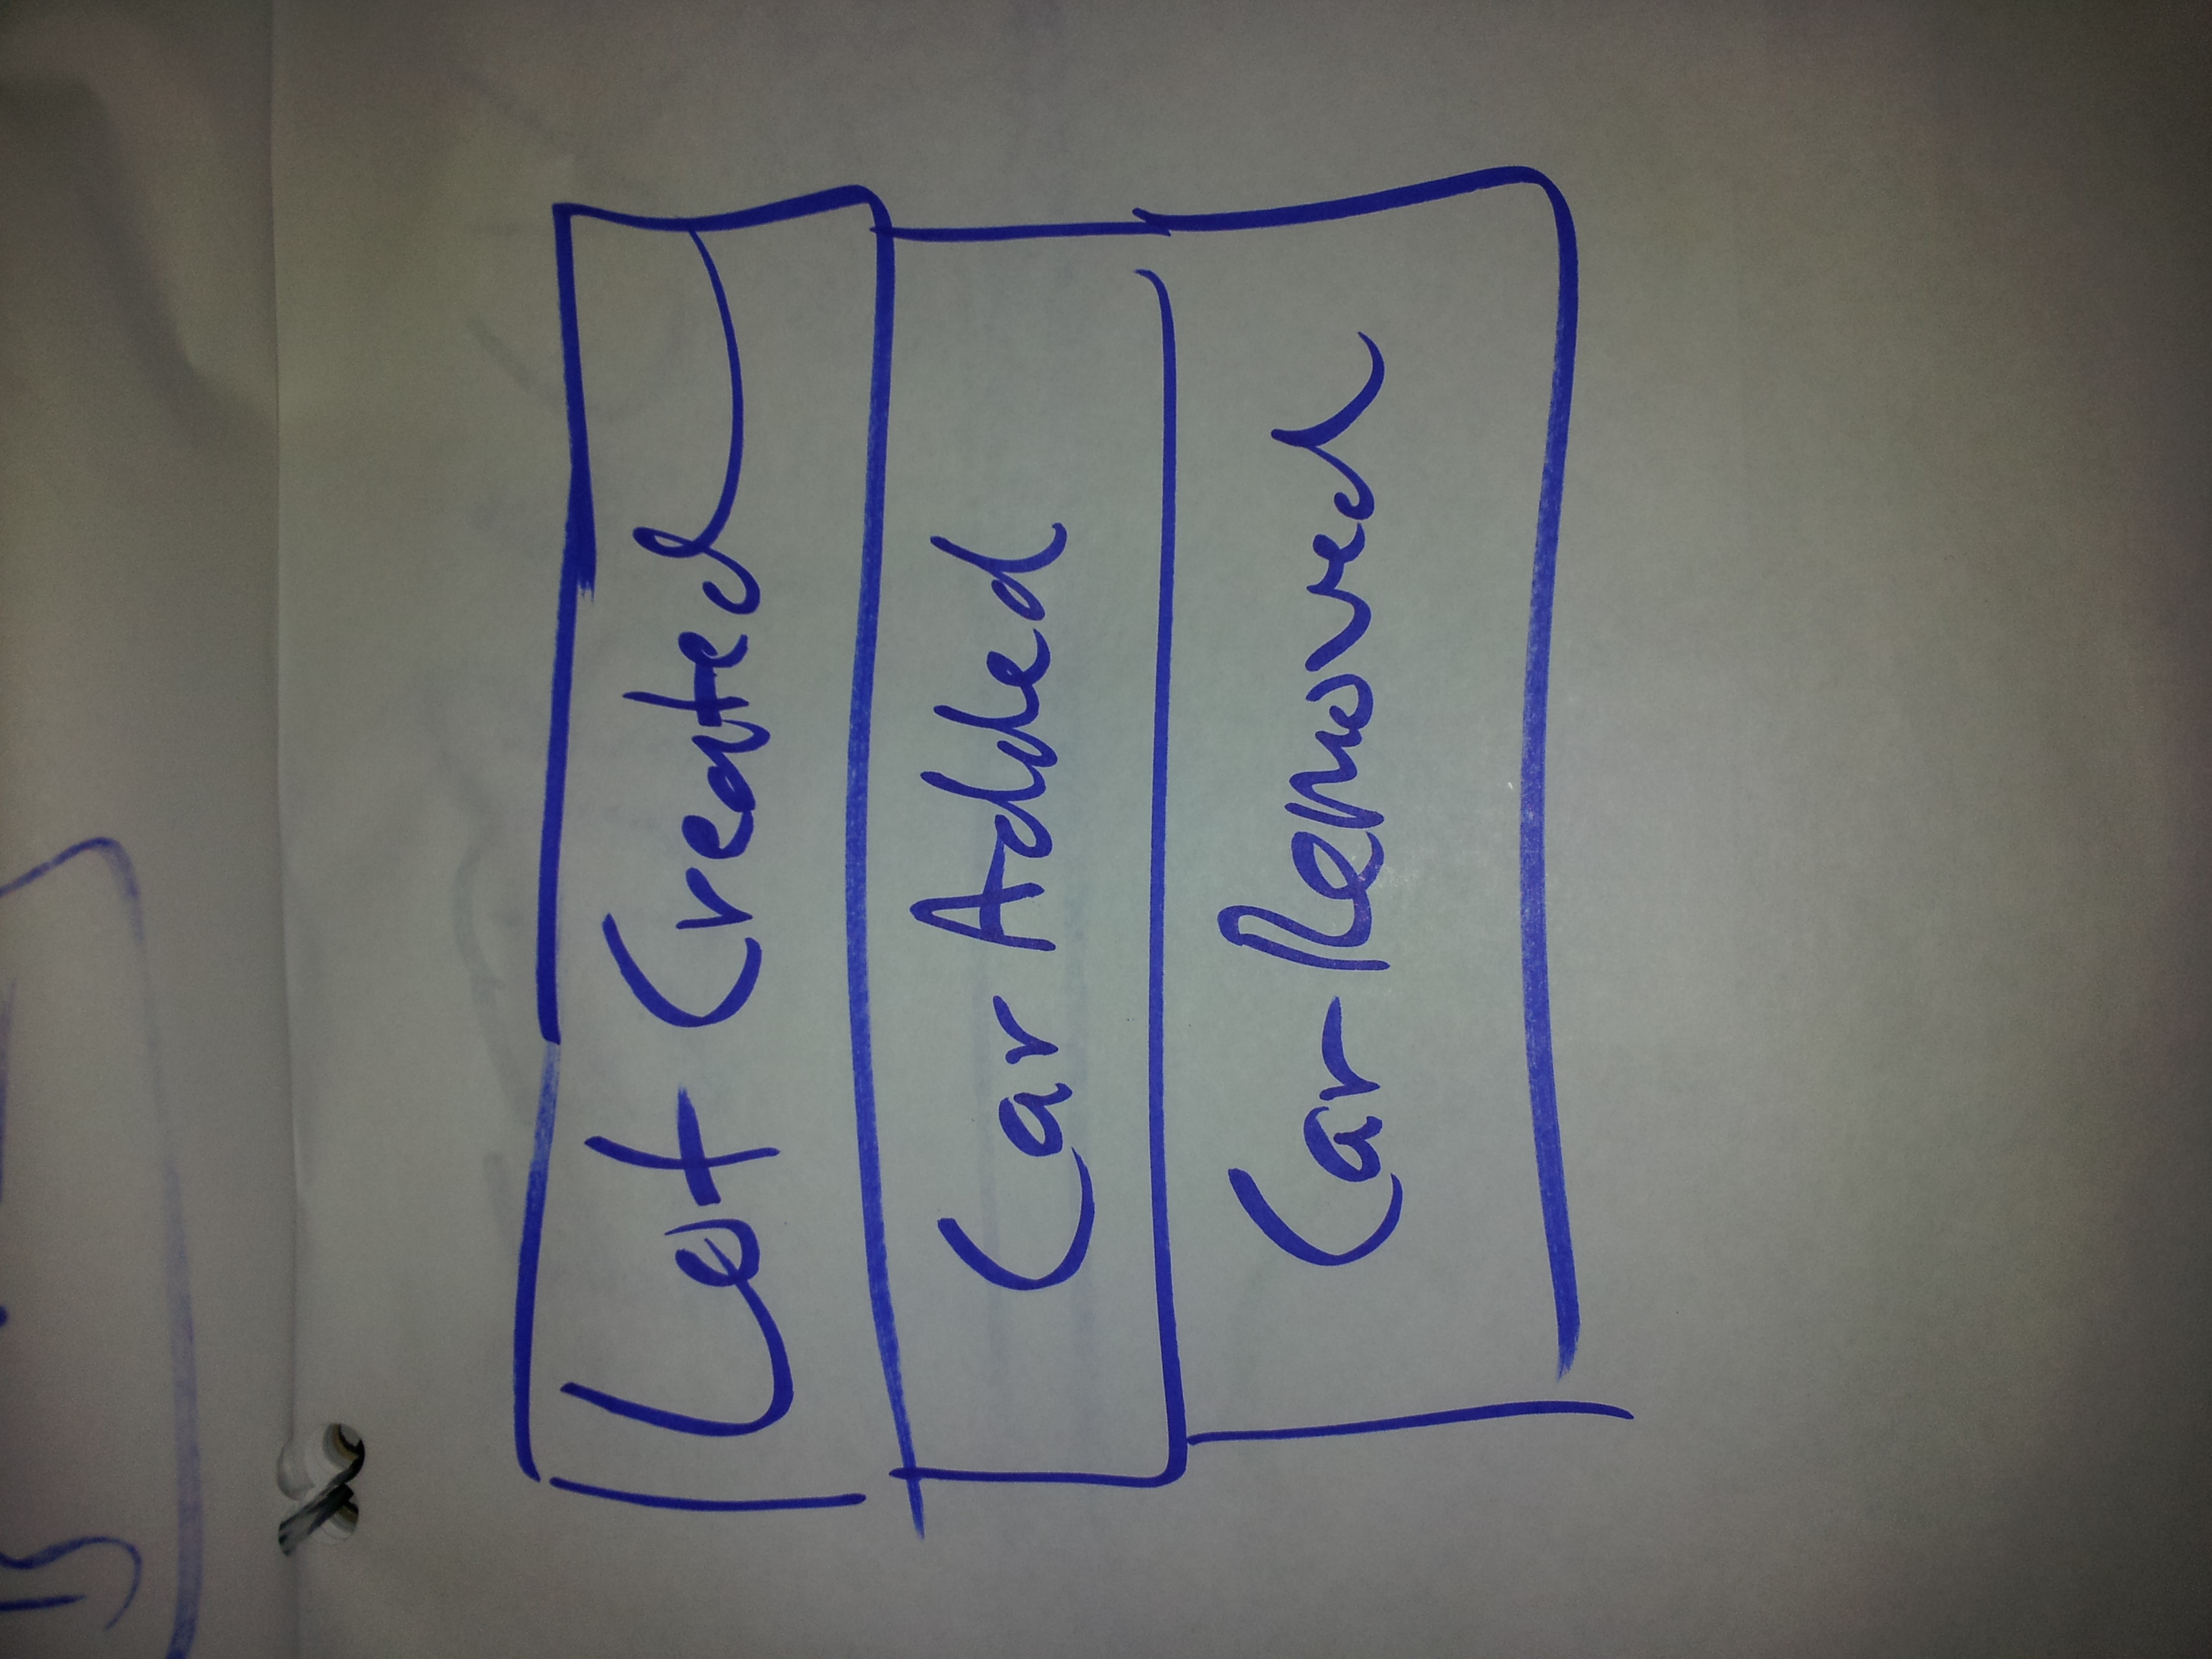 Lot Created
Car Added
Car Removed